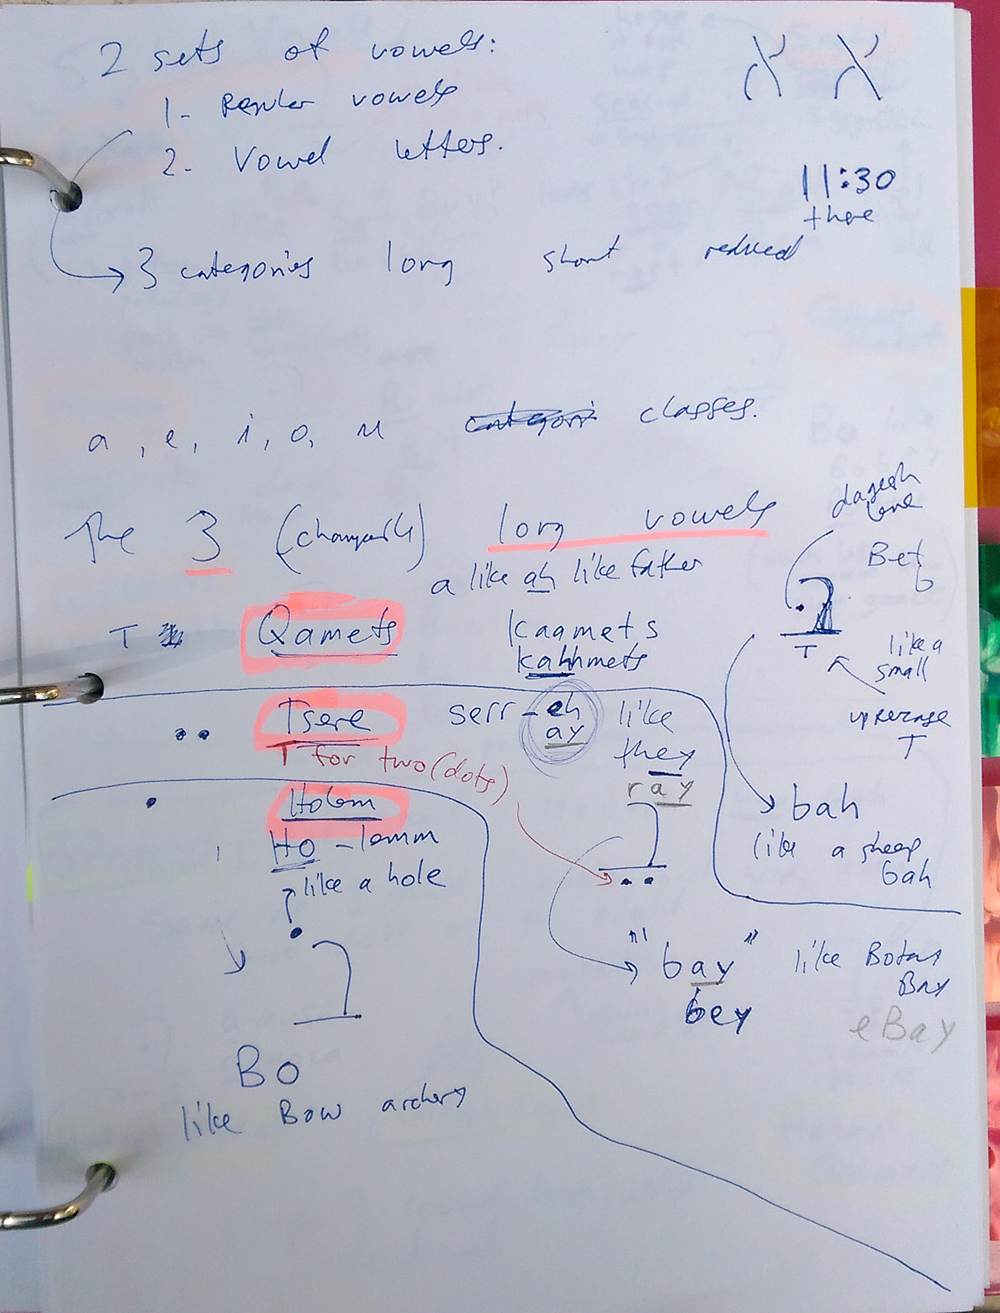 2 sets of vowels:
1- Regular vowels
2- Vowel letters.
11:30
there
3 categories long short reduced
a, e, i, o, u classes.
The 3 (changeable) long vowels
a like ah like father
dagesh
lene
Bet
b
T Qamets
Kaamets
kahhmets
T
like a
small
uppercase
T
Tsere serr-eh like
ay they
T for two (dots)
ray
Holem
Ho-lemm
like a hole
bah
like a sheep
bah
"bay" like Botany
Bay
bey
eBay
Bo
like Bow archery